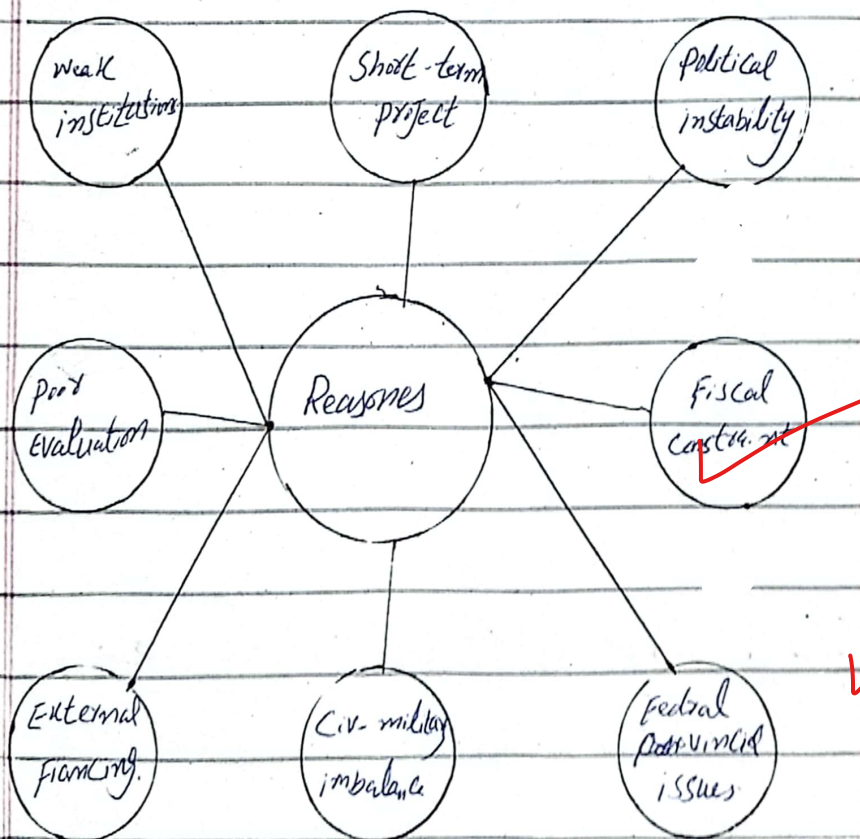 Weak
institutions
Short-term
project
Political
instability
Poor
Evaluation
Reasones
Fiscal
constraint
External
Financing.
Civ-military
imbalance
Fedral
provincial
issues